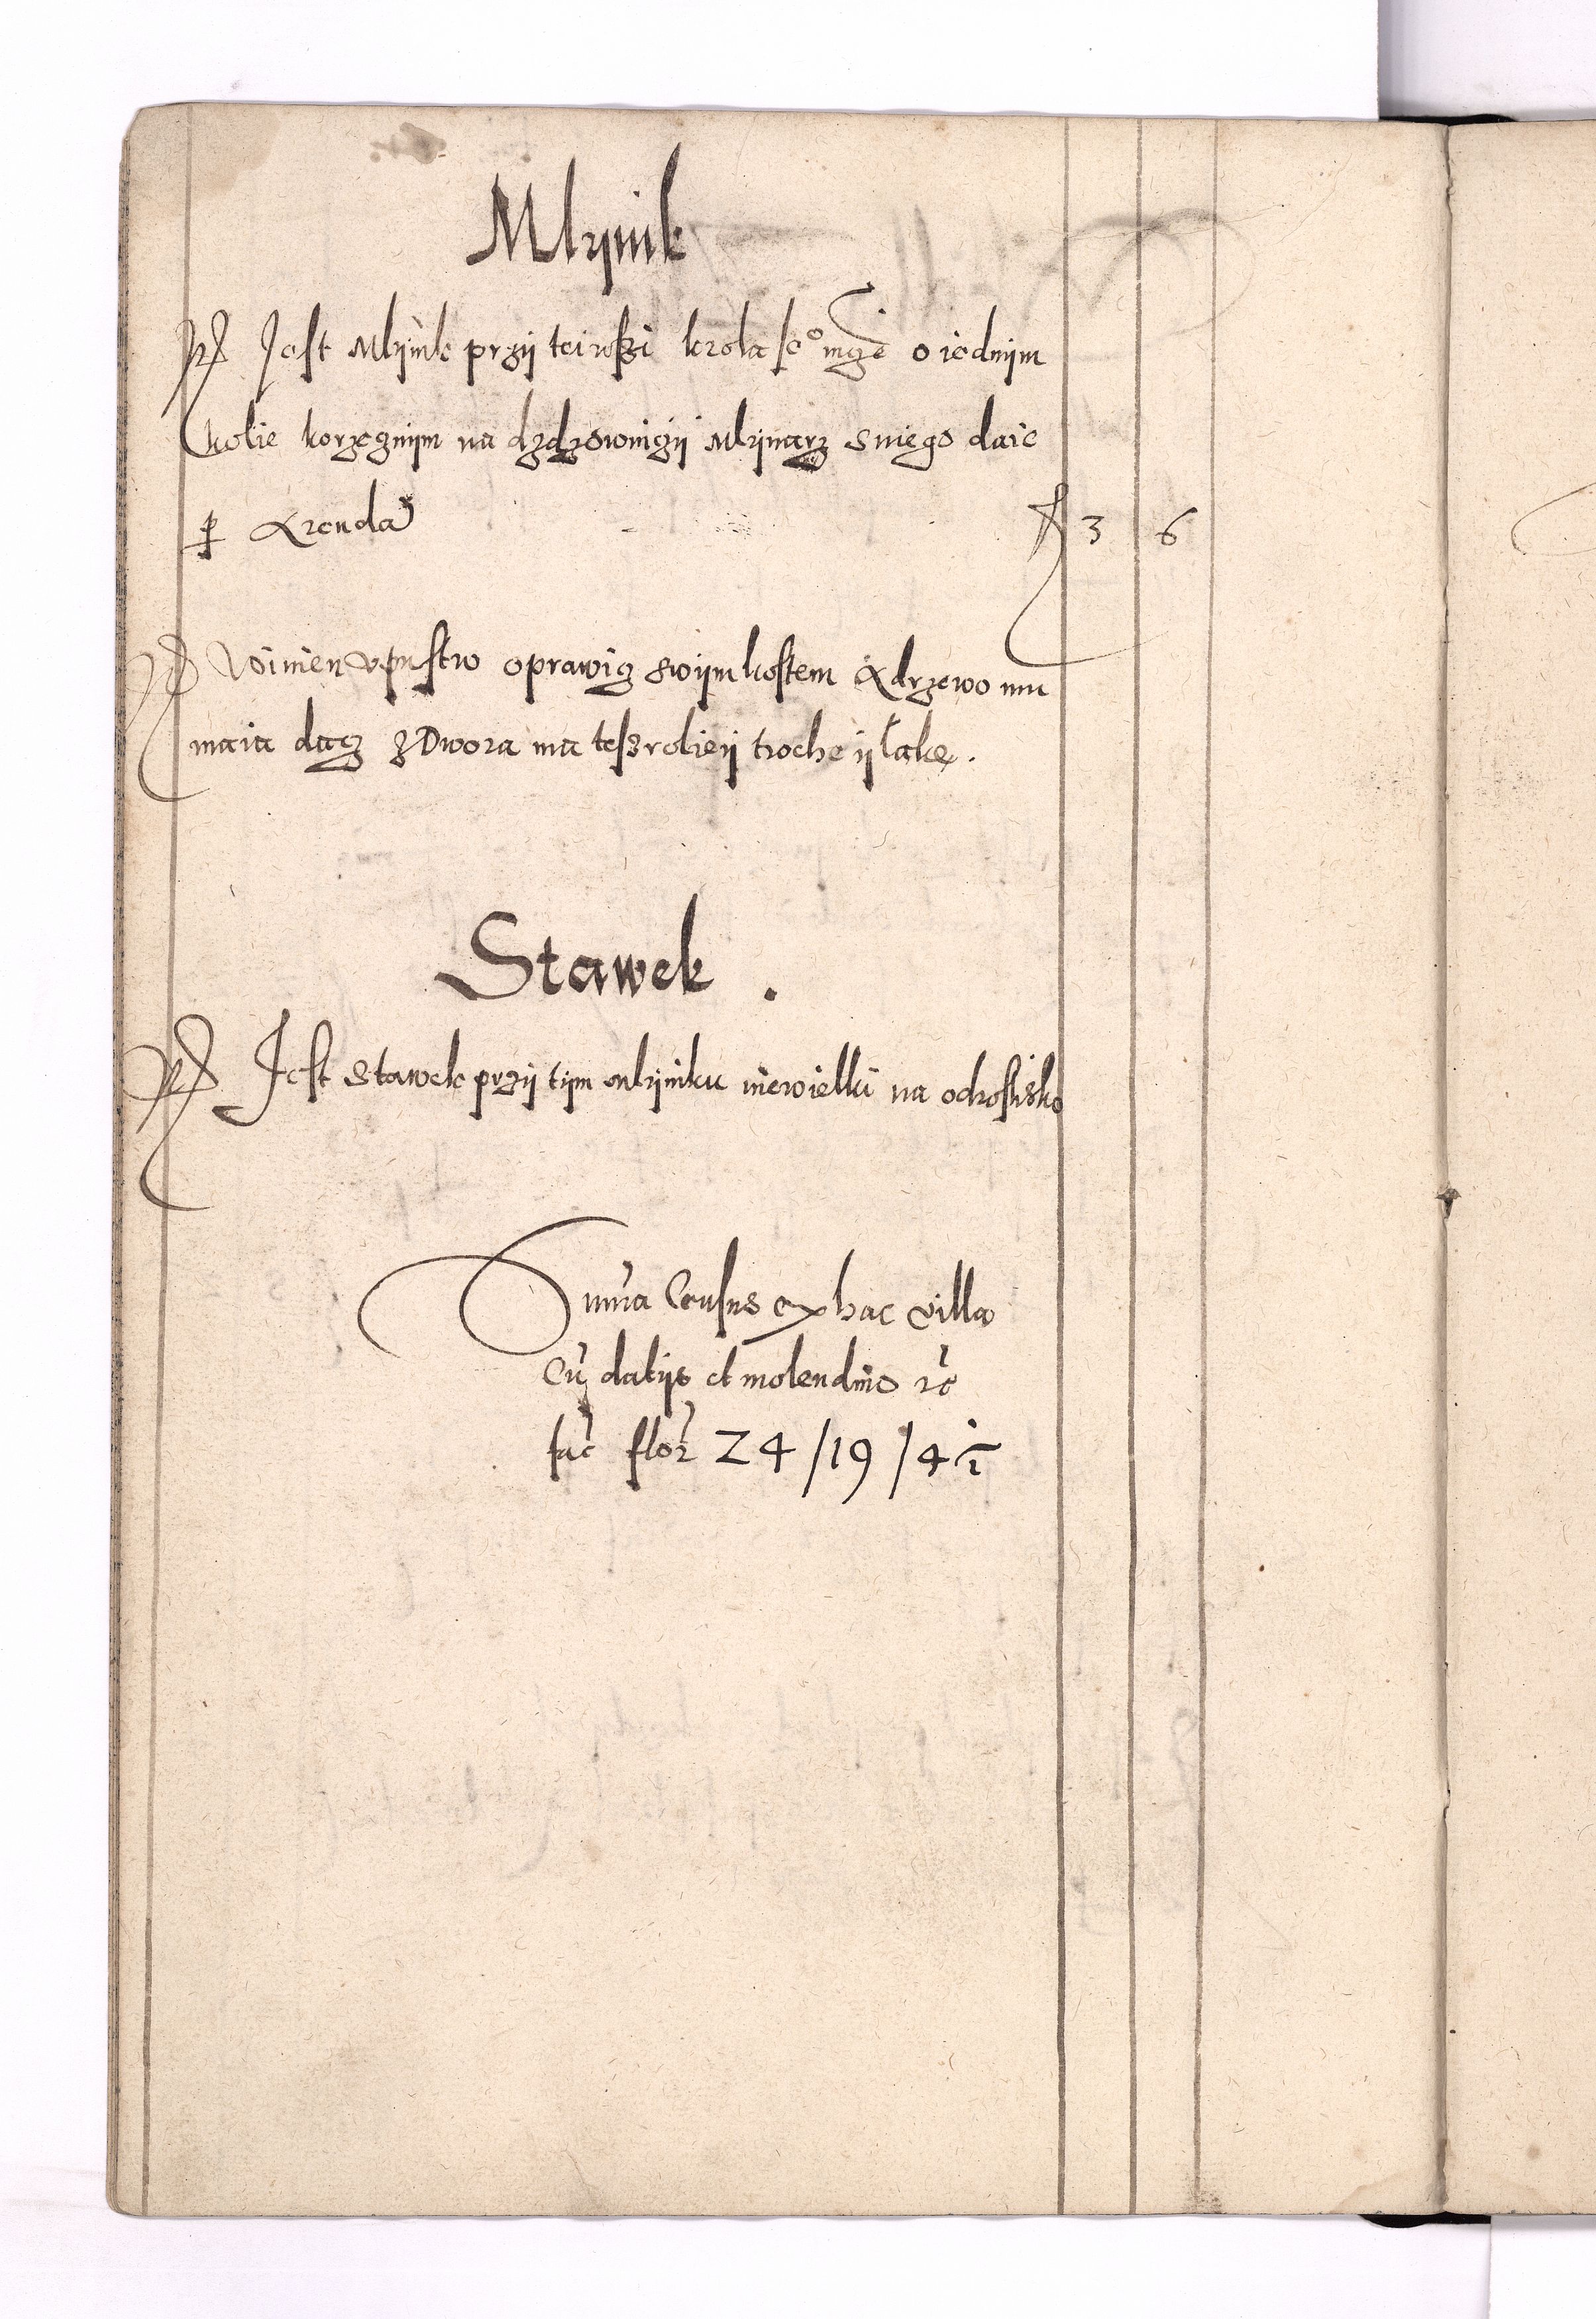 Mlynik
Jest Mlynik przy tei wszi krola ie° mcze o iednym
kolie korzecznym na dzdzowniczy Mlynarz sniego daie
ꝑ Arenda f 3 6
Winien vpustw oprawicz swym kostem A drzewo mu
maia dacz z Dwora ma tesz roliey troche y łake.
Stawek .
Jest stawek przy tym mlyniku niewielki na odrostisko
Suma Census ex hac villa
Cu datijs et molendino rc
fac flor 24/19/4